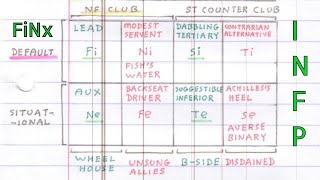 FiNx
NF CLUB
ST COUNTER CLUB
LEAD
MODEST SERVENT
DABBLING TERTIARY
CONTRARIAN ALTERNATIVE
DEFAULT
Fi
Ni
Si
Ti
FISH'S WATER
AUX
BACKSEAT DRIVER
SUGGESTIBLE INFERIOR
ACHILLES'S HEEL
SITUAT-
-IONAL
Ne
Fe
Te
Se
AVERSE BINARY
WHEEL HOUSE
UNSUNG ALLIES
B-SIDE
DISDAINED
I
N
F
P